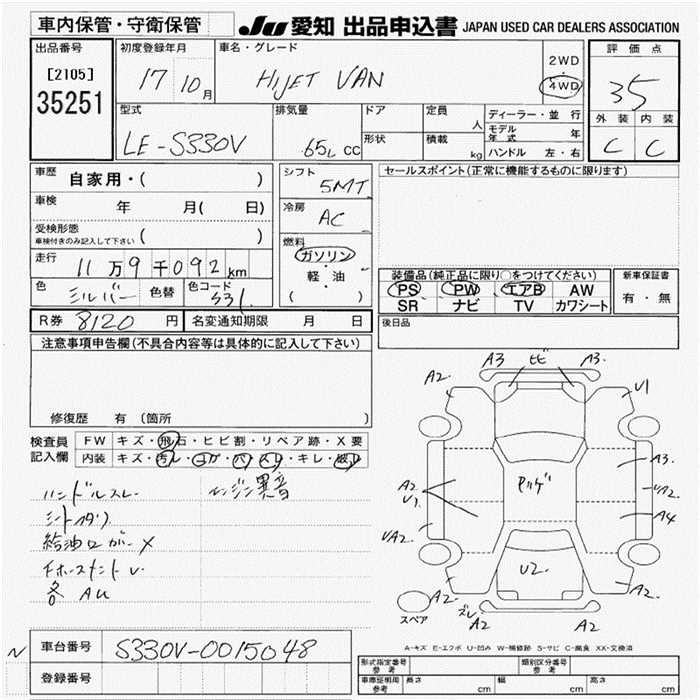 車内保管・守衛保管
JU 愛知 出品申込書 JAPAN USED CAR DEALERS ASSOCIATION
出品番号
[2105]
35251
初度登録年月
17 10月
車名・グレード
HIJET VAN
2WD
・
4WD
評価点
3.5
外装 内装
C C
型式
LE-S330V
排気量
65L CC
ドア
形状
定員
人
積載
kg
ディーラー・並 行
モデル年式 年
ハンドル 左・右
車歴 自家用・( )
車検 年 月( 日)
受検形態
車検付きのみ記入して下さい ( )
走行 11万9千092km
色 シルバー 色替 色コード S31
R券 8120円 名変通知期限 月 日
シフト
5MT
冷房
AC
燃料
ガソリン
・
軽・油
( )
セールスポイント(正常に機能するものに限ります)
装備品(純正品に限り○をつけてください)
PS PW エアB AW
SR ナビ TV カワシート
新車保証書
有・無
後日品
注意事項申告欄(不具合内容等は具体的に記入して下さい)
修復歴 有 (箇所 )
検査員記入欄
FW キズ・飛石・ヒビ割・リペア跡・X要
内装 キズ・汚レ・コゲ・穴・スレ・キレ・
ハンドルスレ エンジン異音
シート
給油口カバーX
各AU
A2 A3 ビビ A3 U1
A2 U1 A3 UA2 A4
UA2 UA2
U2
A2 ズレ A2 A2 A2
スペア
A-キズ E-エクボ U-凹み W-補修跡 S-サビ C-腐食 XX-交換済
N
車台番号 S330V-0015048
登録番号
形式指定番号 参考 類別区分番号 参考
車庫証明用 参考 長さ cm 幅 cm 高さ cm